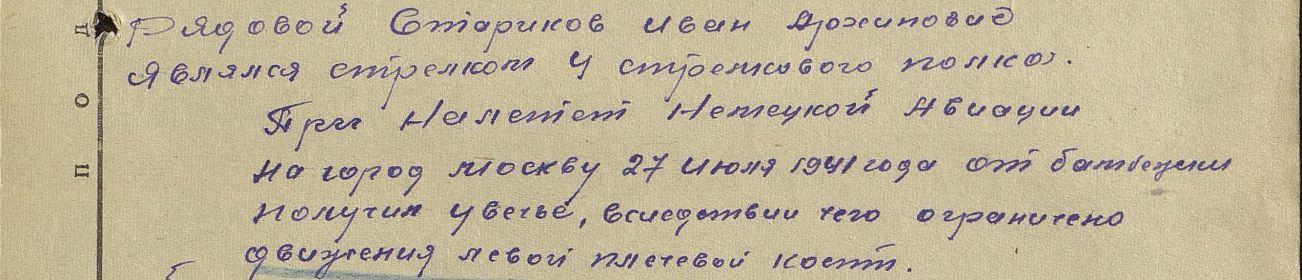 Рядовой Стариков Иван Архипович
Являлся стрелком 4 стрелкового полка.
При налете Немецкой Авиации
на город Москву 27 июля 1941 года от
получил увечье, вследствии чего ограничено
движения левой плечевой кости.